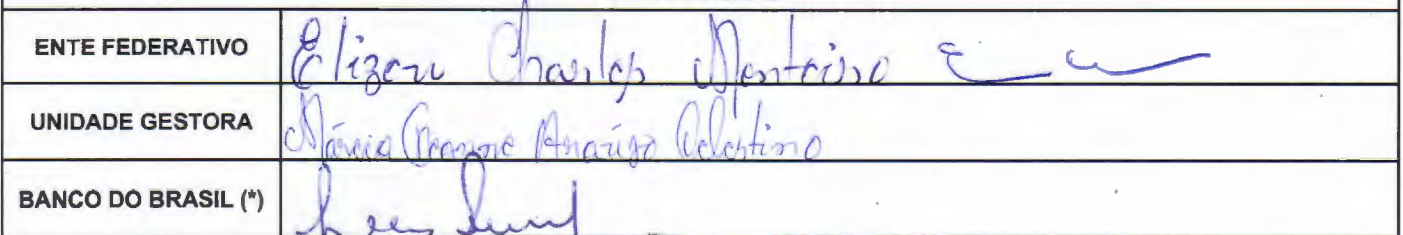 ENTE FEDERATIVO Elizeu Charles Monteiro
UNIDADE GESTORA Márcia Araújo Celestino
BANCO DO BRASIL (*)